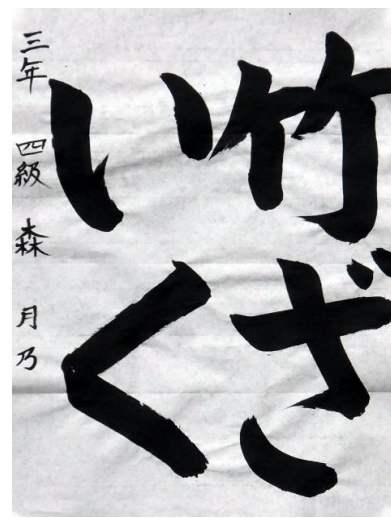 竹ざ
いく
三年 四級 森 月乃